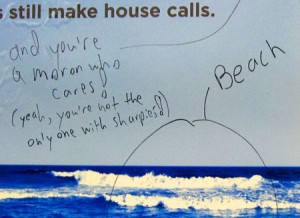 s still make house calls.
and you're
a moron who
cares
(yeah, you're not the
only one with sharpies!)
Beach